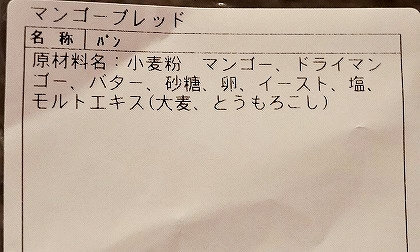 マンゴーブレッド
名 称 パン
原材料名：小麦粉　マンゴー、ドライマン
ゴー、バター、砂糖、卵、イースト、塩、
モルトエキス(大麦、とうもろこし)